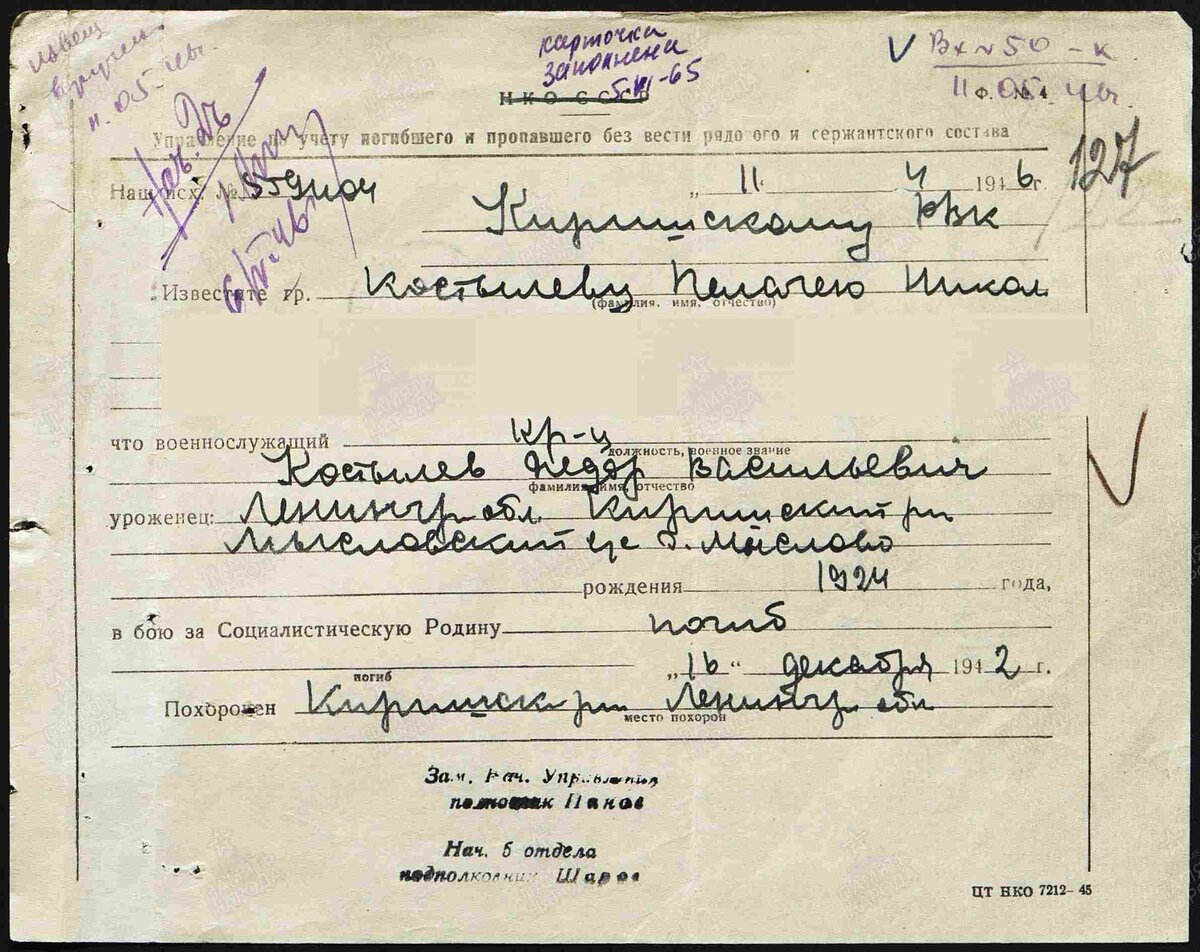 карточка
заполнена
5-VI-65
Вх № 50 - к
11.05.46г.
НКО СССР
Ф. № 4
Управление по учету погибшего и пропавшего без вести рядового и сержантского состава
127
Наш исх. №
„ 11 4 1946г.
Киришскому РВК
Известите гр. Костылеву Пелагею Никол
(фамилия, имя, отчество)
что военнослужащий кр-ц
должность, военное звание
Костылев Федор Васильевич
фамилия, имя, отчество
уроженец: Ленингр обл. Киришский рн
Мысловский с/с д. Мыслово
рождения 1924 года,
в бою за Социалистическую Родину погиб
„16“ декабря 1942 г.
погиб
Похоронен Киришск рн Ленингр обл
место похорон
Зам. Нач. Управления
полковник Панов
Нач. 6 отдела
подполковник Шаров
ЦТ НКО 7212-45